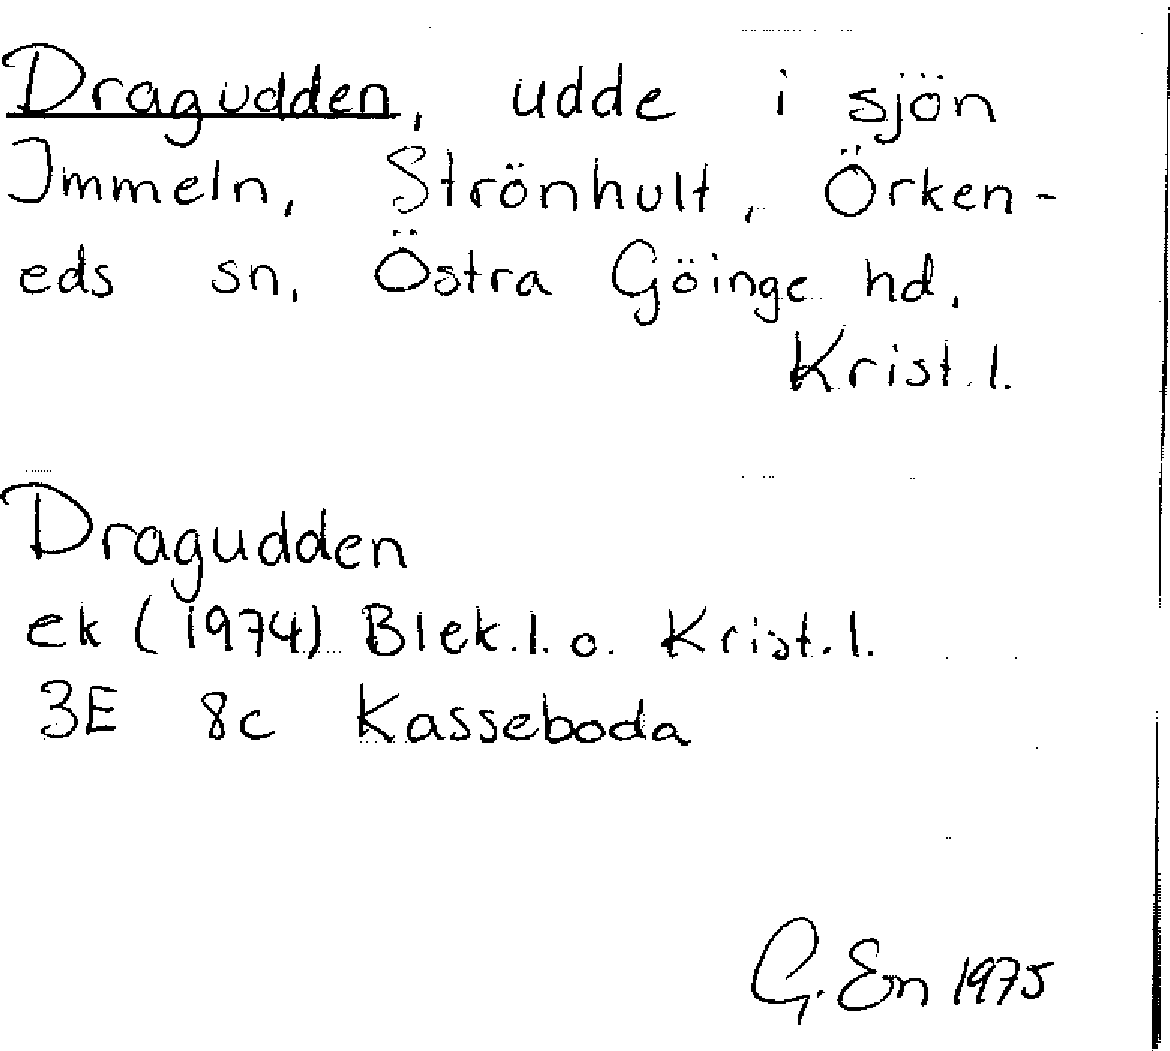 Dragudden, udde i sjön
Immeln, Strönhult, Örken-
eds sn, Östra Göinge hd,
Krist. l.
Dragudden
ek (1974) Blek. l. o. Krist. l.
3E 8c Kasseboda
G. En 1975